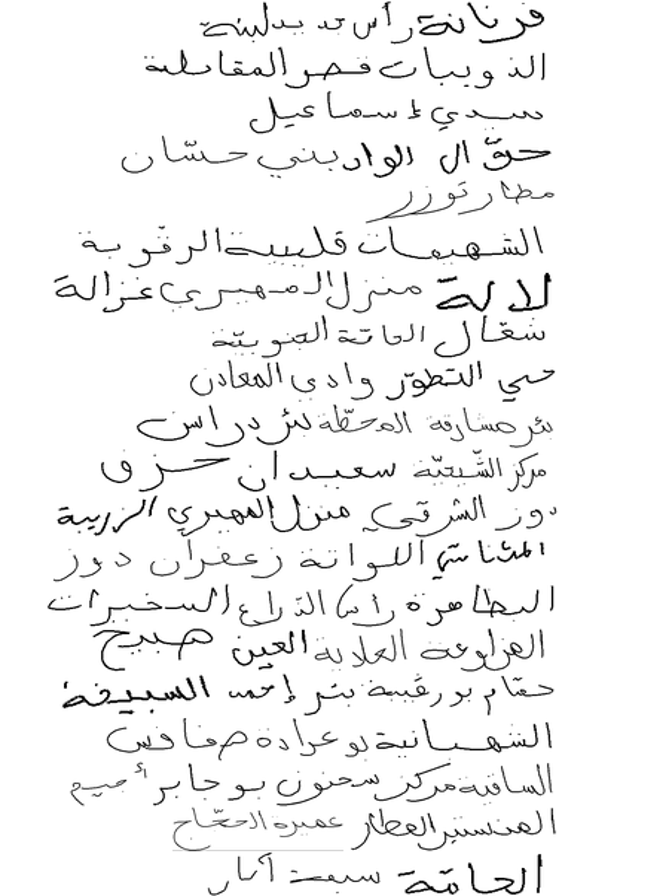 فرنانة رأس
الذويبات قصر المقاطنة
سيدي إسماعيل
حقّ ال الواد بني حسّان
مطار توزر
الشهيمات قليبية الرقوبة
لالة منزل المهيري غزالة
شغال الحامّة الجنوبيّة
حي التطوّر وادي المعادن
بئر مشارقة المحطّة بئر دراس
مركز الشّعبيّة سعيدان حزق
دوز الشرقي منزل المهيري الزريبة
اللواتة زعفران دوز
البطاهرة رأس الذّراع السخيرات
الهراوعة العلاية العين صبيح
حمّام بورقيبة بئر إحمد السبيخة
الشهبانية بوعرادة صفاقس
الساقية مركز سحنون بوجابر أميم
المنستير العطار عميرة الحجّاج
الحامّة سبعة آبار